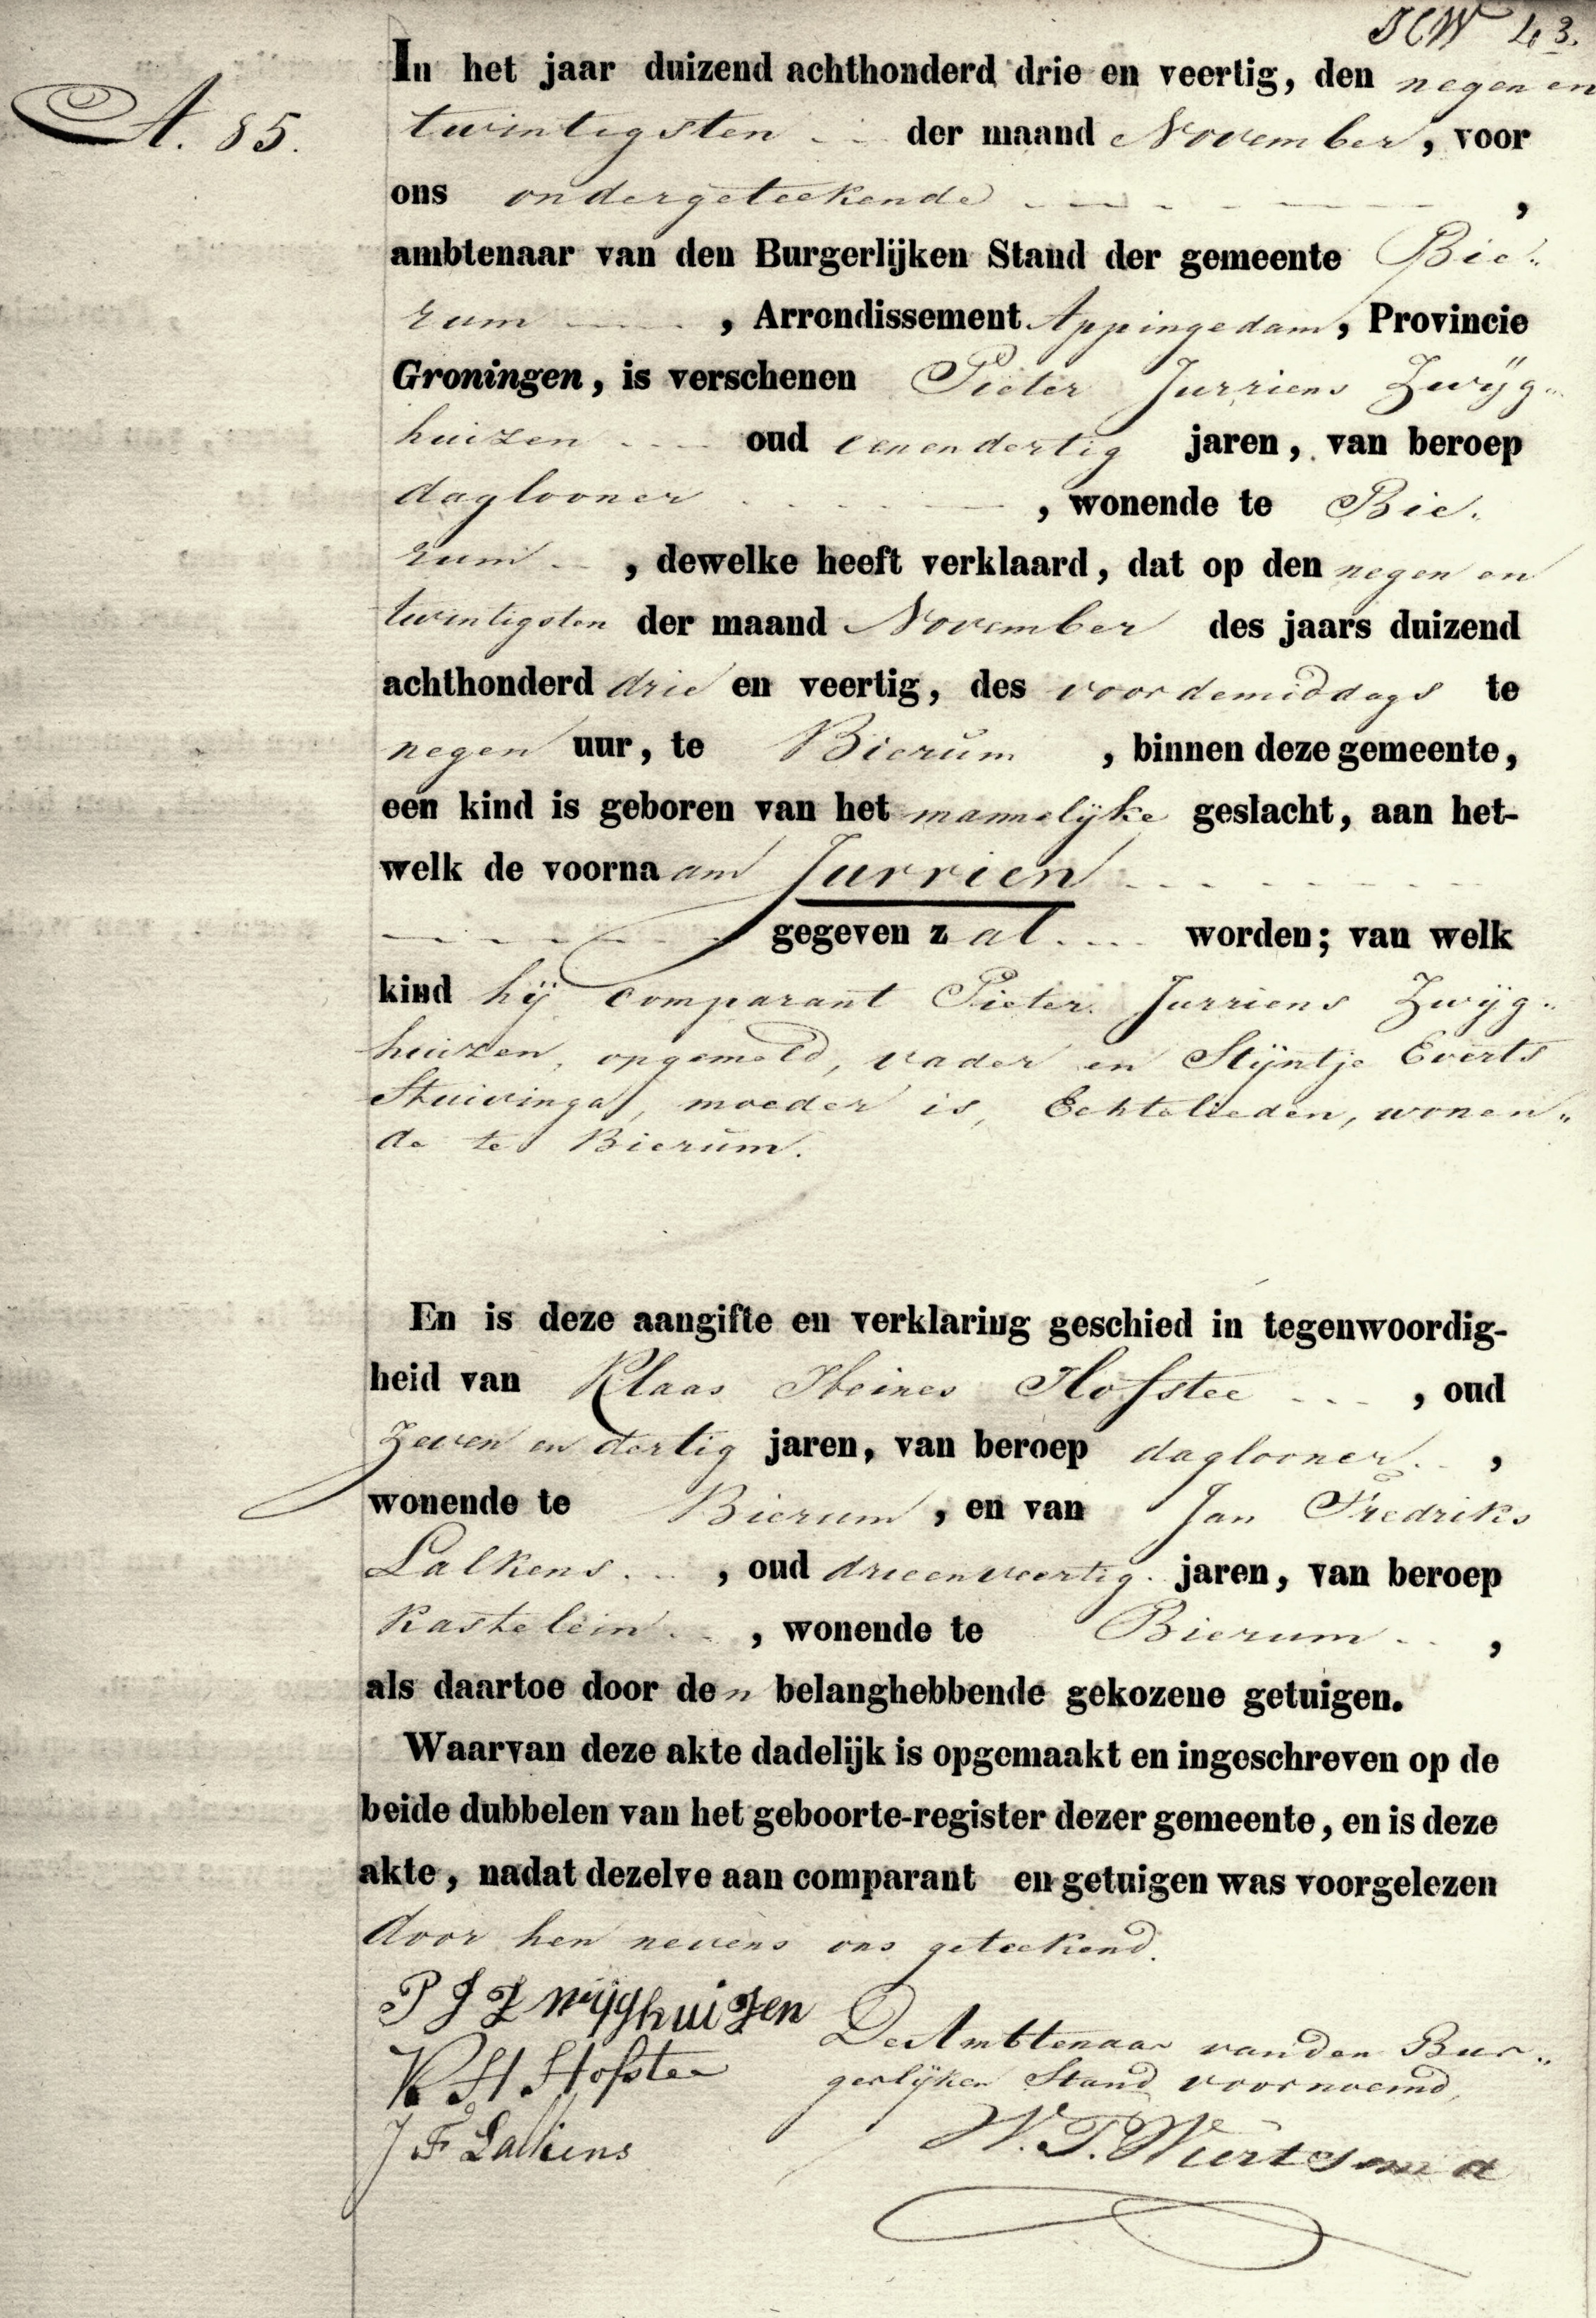 43.
In het jaar duizend achthonderd drie en veertig, den negen en
A. 85.
twintigsten der maand November, voor
ons ondergeteekende ,
ambtenaar van den Burgerlijken Stand der gemeente Bie-
rum , Arrondissement Appingedam, Provincie
Groningen, is verschenen Pieter Jurriens Zwijg-
huizen oud eenendertig jaren, van beroep
daglooner , wonende te Bie-
rum , dewelke heeft verklaard, dat op den negen en
twintigsten der maand November des jaars duizend
achthonderd drie en veertig, des voordemiddags te
negen uur, te Bierum , binnen deze gemeente,
een kind is geboren van het mannelijke geslacht, aan het-
welk de voornaam Jurrien
gegeven zal worden; van welk
kind hij comparant Pieter Jurriens Zwijg-
huizen, opgemeld, vader en Stijntje Everts
Stuivinga, moeder is, Echtelieden, wonen-
de te Bierum.
En is deze aangifte en verklaring geschied in tegenwoordig-
heid van Klaas Heines Hofstee , oud
zeven en dertig jaren, van beroep daglooner ,
wonende te Bierum , en van Jan Fredriks
Lalkens , oud drieenveertig jaren, van beroep
kastelein , wonende te Bierum ,
als daartoe door den belanghebbende gekozene getuigen.
Waarvan deze akte dadelijk is opgemaakt en ingeschreven op de
beide dubbelen van het geboorte-register dezer gemeente, en is deze
akte, nadat dezelve aan comparant en getuigen was voorgelezen
door hen nevens ons geteekend.
P J Zwijghuizen
De Ambtenaar van den Bur-
gerlijken Stand voornoemd,
K H Hofstee
J F Lalkens
W. T. Wiertsema